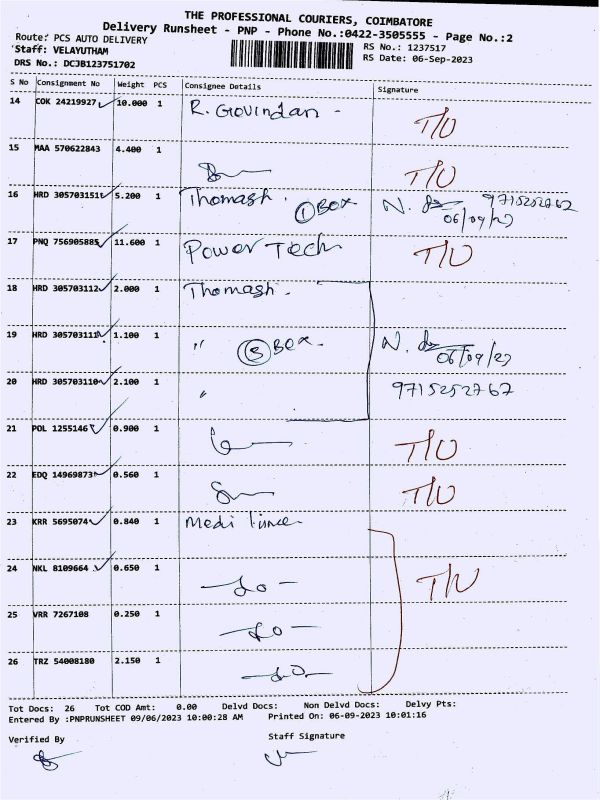 THE PROFESSIONAL COURIERS, COIMBATORE
Delivery Runsheet - PNP - Phone No.:0422-3505555 - Page No.:2
Route: PCS AUTO DELIVERY RS No.: 1237517
Staff: VELAYUTHAM RS Date: 06-Sep-2023
DRS No.: DCJB123751702
S No Consignment No Weight PCS Consignee Details Signature
14 COK 24219927 10.000 1 R. Govindan - T/U
15 MAA 570622843 4.400 1 T/U
16 HRD 305703151 5.200 1 Thomash. ① BOX N. 9715252762
06/09/23
17 PNQ 756905885 11.600 1 Power Tech T/U
18 HRD 305703112 2.000 1 Thomash.
19 HRD 305703111 1.100 1 " ③ BOX N. 06/09/23
20 HRD 305703110 2.100 1 " 9715252767
21 POL 1255146 0.900 1 T/U
22 EDQ 14969873 0.560 1 T/U
23 KRR 5695074 0.840 1 Medi
24 NKL 8109664 0.650 1 -do- T/U
25 VRR 7267108 0.250 1 -do-
26 TRZ 54008180 2.150 1 -do-
Tot Docs: 26 Tot COD Amt: 0.00 Delvd Docs: Non Delvd Docs: Delvy Pts:
Entered By :PNPRUNSHEET 09/06/2023 10:00:28 AM Printed On: 06-09-2023 10:01:16
Verified By Staff Signature